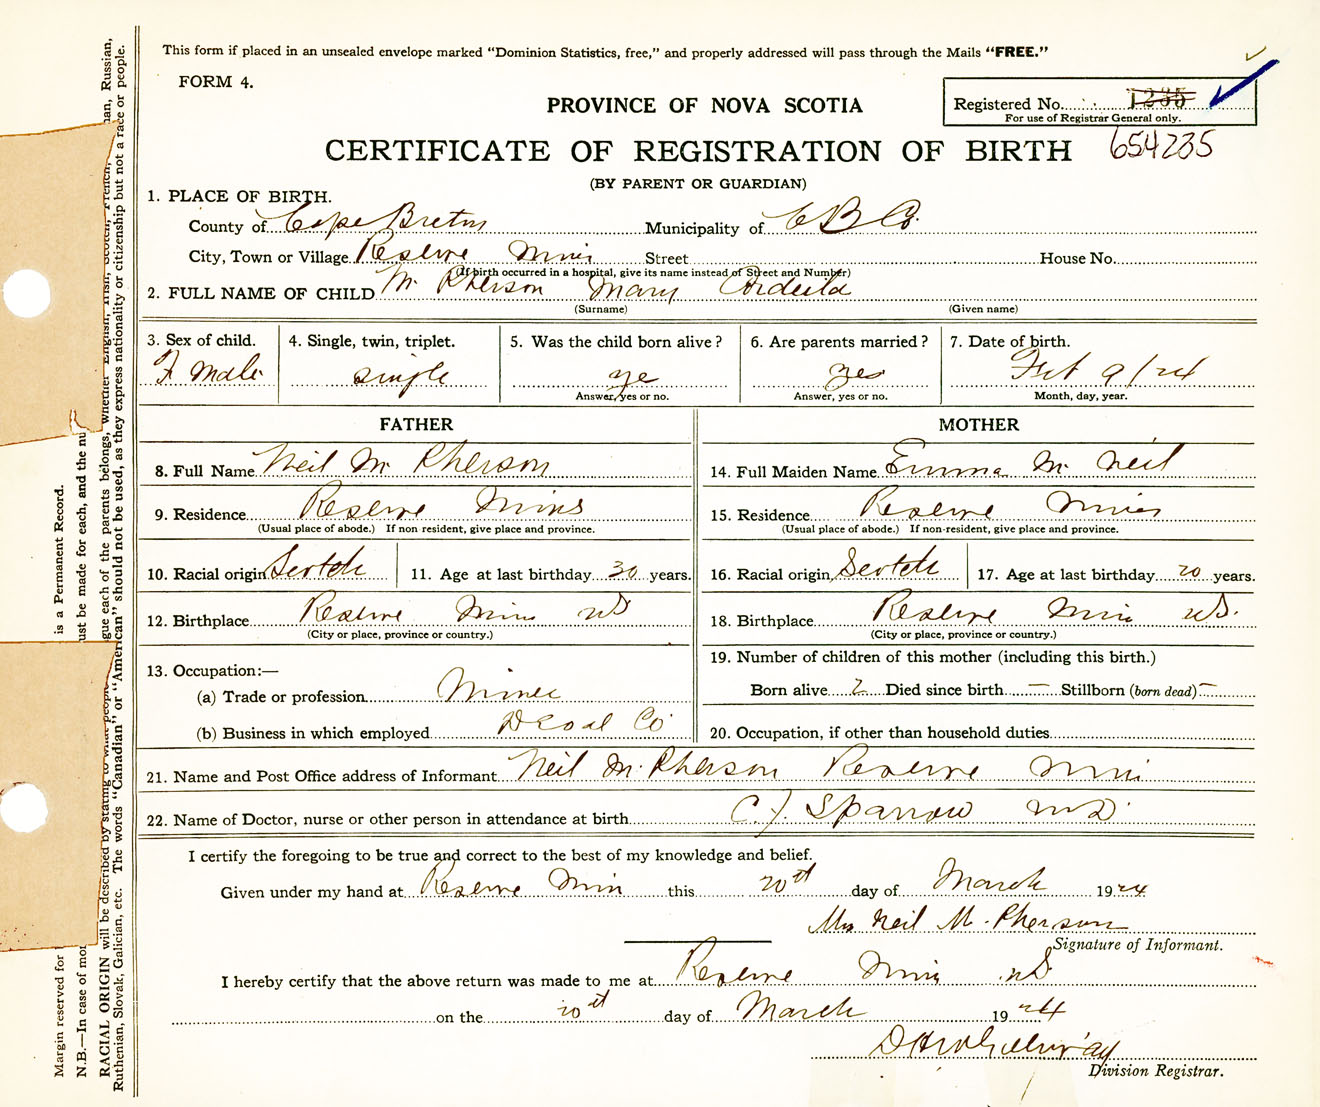 This form if placed in an unsealed envelope marked "Dominion Statistics, free," and properly addressed will pass through the Mails "FREE."
FORM 4.
PROVINCE OF NOVA SCOTIA
Registered No. 1235
For use of Registrar General only.
CERTIFICATE OF REGISTRATION OF BIRTH
654235
(BY PARENT OR GUARDIAN)
1. PLACE OF BIRTH.
County of Cape Breton Municipality of C B Co.
City, Town or Village Reserve Mines Street House No.
(If birth occurred in a hospital, give its name instead of Street and Number)
2. FULL NAME OF CHILD Mc Pherson Mary
(Surname) (Given name)
3. Sex of child. 4. Single, twin, triplet. 5. Was the child born alive? 6. Are parents married? 7. Date of birth.
F male single yes yes Feb 9/24
Answer, yes or no. Answer, yes or no. Month, day, year.
FATHER MOTHER
8. Full Name Neil Mc Pherson 14. Full Maiden Name Emma Mc Neil
9. Residence Reserve Mines 15. Residence Reserve Mines
(Usual place of abode.) If non resident, give place and province. (Usual place of abode.) If non-resident, give place and province.
10. Racial origin Scotch 11. Age at last birthday 30 years. 16. Racial origin Scotch 17. Age at last birthday 20 years.
12. Birthplace Reserve Mines NS 18. Birthplace Reserve Mines NS.
(City or place, province or country.) (City or place, province or country.)
13. Occupation:— 19. Number of children of this mother (including this birth.)
(a) Trade or profession Miner Born alive 2 Died since birth — Stillborn (born dead) —
(b) Business in which employed D Coal Co 20. Occupation, if other than household duties
21. Name and Post Office address of Informant Neil Mc Pherson Reserve Mines
22. Name of Doctor, nurse or other person in attendance at birth C. J. Sparrow MD
I certify the foregoing to be true and correct to the best of my knowledge and belief.
Given under my hand at Reserve Mines this 20th day of March 1924
Mrs Neil Mc Pherson
Signature of Informant.
I hereby certify that the above return was made to me at Reserve Mines NS
on the 20th day of March 1924
Division Registrar.
Margin reserved for
is a Permanent Record.
N.B.—In case of mor
ust be made for each, and the nu
RACIAL ORIGIN will be described by stating to what people
gue each of the parents belongs, whether English, Irish, Scotch, French,
man, Russian,
Ruthenian, Slovak, Galician, etc. The words "Canadian" or "American" should not be used, as they express nationality or citizenship but not a race or people.